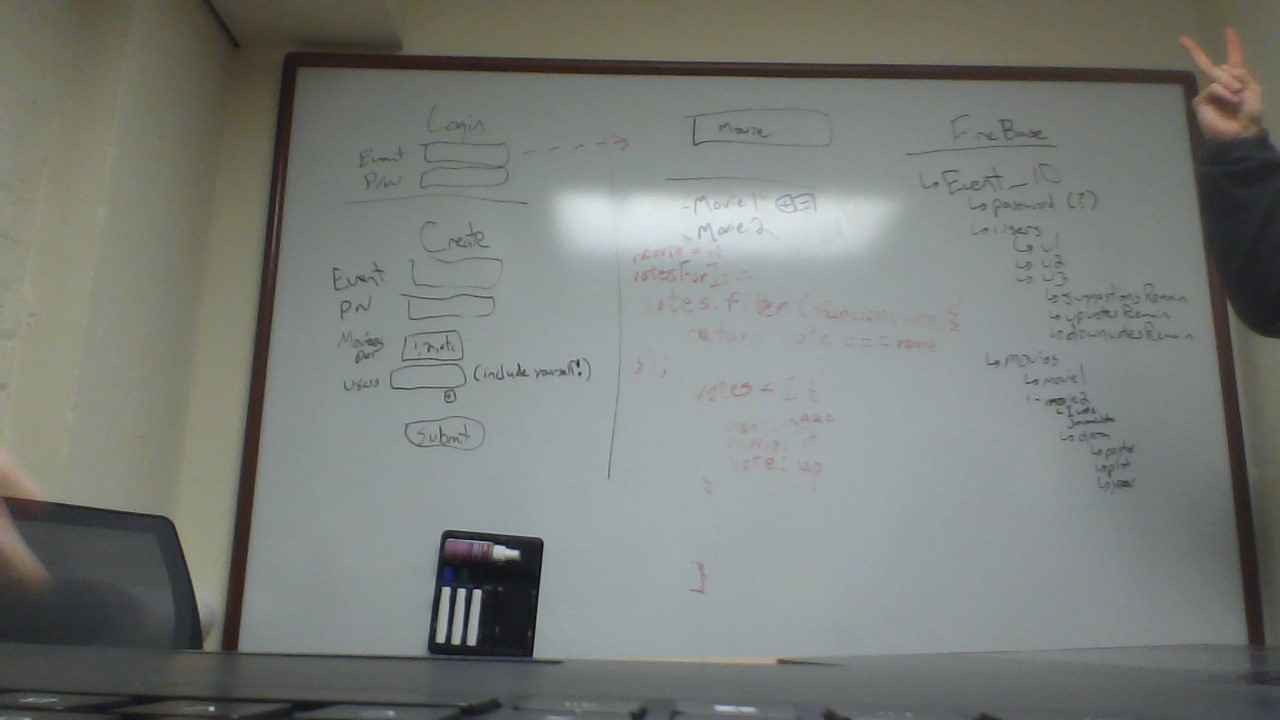 Login
Event
P/W
Create
Event
PW
Movies
per
users (include yourself!)
Submit
Movie
- Movie1 + -
- Movie2
movie =
votes[for] =
votes.filter (funcion(vote){
return vote === movie
});
votes = [ {
vote: up
}
]
FireBase
↳ Event_ID
↳ password (?)
↳ users
↳ u1
↳ u2
↳ u3
↳ suggestionsRemain
↳ upvotesRemain
↳ downvotesRemain
↳ movies
↳ movie1
- movie2
↳ poster
↳ plot
↳ year